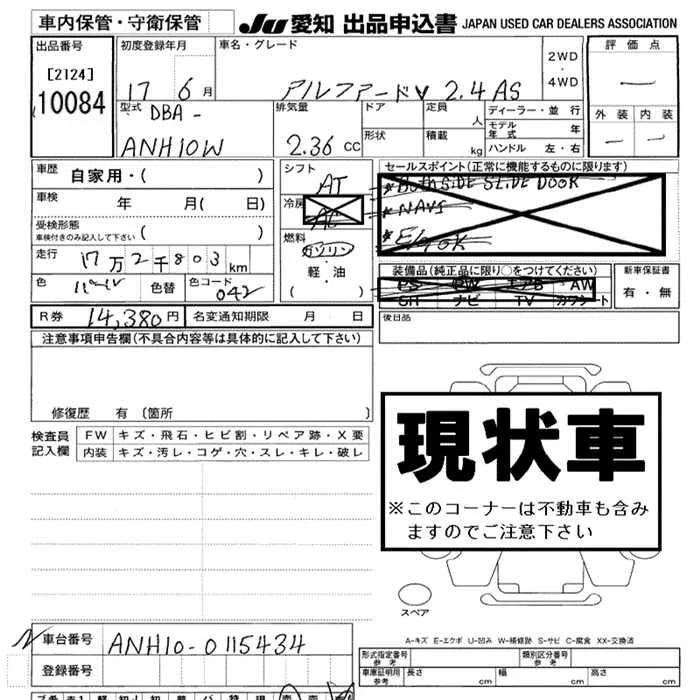 車内保管・守衛保管
JU 愛知 出品申込書 JAPAN USED CAR DEALERS ASSOCIATION
出品番号 初度登録年月 車名・グレード 評価点
[2124] 2WD
10084 17 6月 アルファード V 2.4 AS 4WD 一
型式 排気量 ドア 定員 ディーラー・並行 外装 内装
DBA- 人 モデル年式 年
ANH10W 2.36 CC 形状 積載 kg ハンドル 左・右 一 一
車歴 自家用・( ) シフト AT セールスポイント(正常に機能するものに限ります)
車検 年 月( 日) 冷房 AC *BOTH SIDE SLIDE DOOR
*NAVI
受検形態 車検付きのみ記入して下さい ( ) 燃料 ガソリン
走行 17万2千803km 軽・油 装備品(純正品に限り○をつけてください) 新車保証書
色 パール 色替 色コード 042 ( ) PS PW エアB AW 有・無
SH ナビ TV カワシート
R券 14,380円 名変通知期限 月 日 後日品
注意事項申告欄(不具合内容等は具体的に記入して下さい)
修復歴 有 [箇所 ]
現状車
※このコーナーは不動車も含み
ますのでご注意下さい
検査員記入欄 FW キズ・飛石・ヒビ割・リペア跡・X要
内装 キズ・汚レ・コゲ・穴・スレ・キレ・破レ
スペア
A-キズ E-エクボ U-凹み W-補修跡 S-サビ C-腐食 XX-交換済
車台番号 ANH10-0115434
形式指定番号 参考 類別区分番号 参考
登録番号 車庫証明用 参考 長さ cm 幅 cm 高さ cm